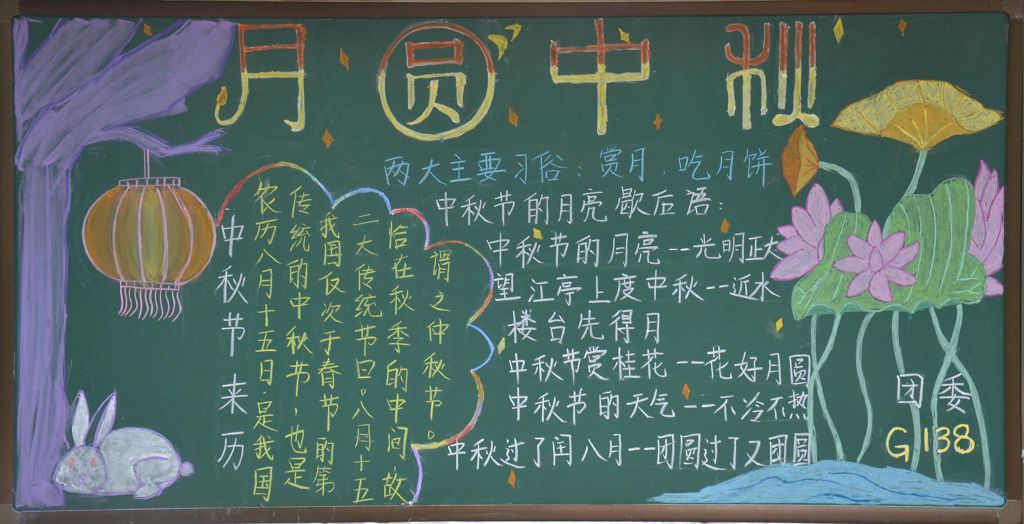 月圆中秋
两大主要习俗：赏月，吃月饼
中秋节来历
农历八月十五日，是我国
传统的中秋节，也是
我国仅次于春节的第
二大传统节日。八月十五
恰在秋季的中间，故
谓之仲秋节。
中秋节的月亮歇后语：
中秋节的月亮--光明正大
望江亭上度中秋--近水
楼台先得月
中秋节赏桂花--花好月圆
中秋节的天气--不冷不热
中秋过了闰八月--团圆过了又团圆
团委
G138